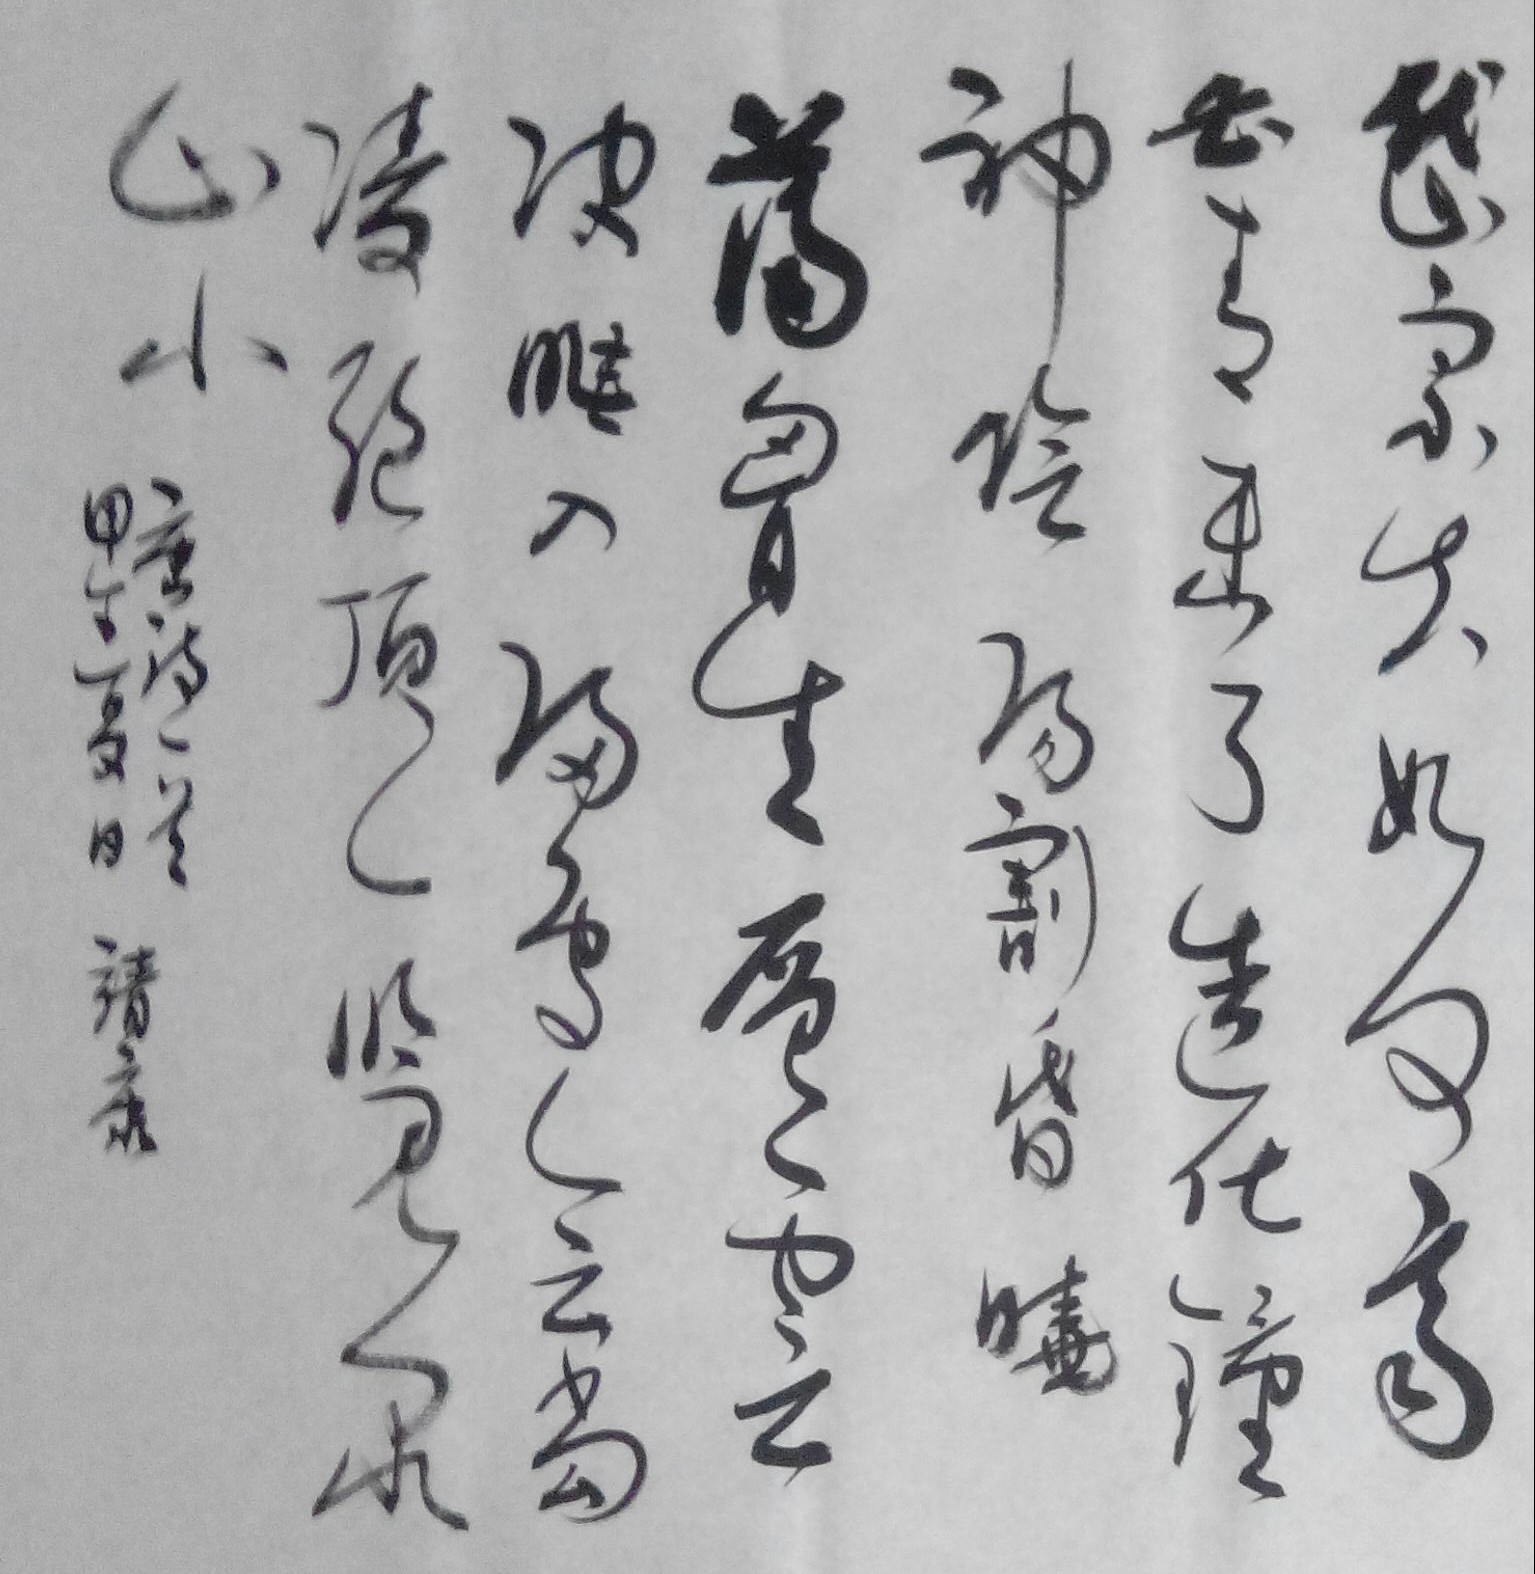 岱宗夫如何齊
魯青未了造化鍾
神陰陽割昏曉
蕩胸生層雲
决眦入歸鳥會當
凌絕頂一覽衆
山小
唐詩一首
甲午夏日 靖